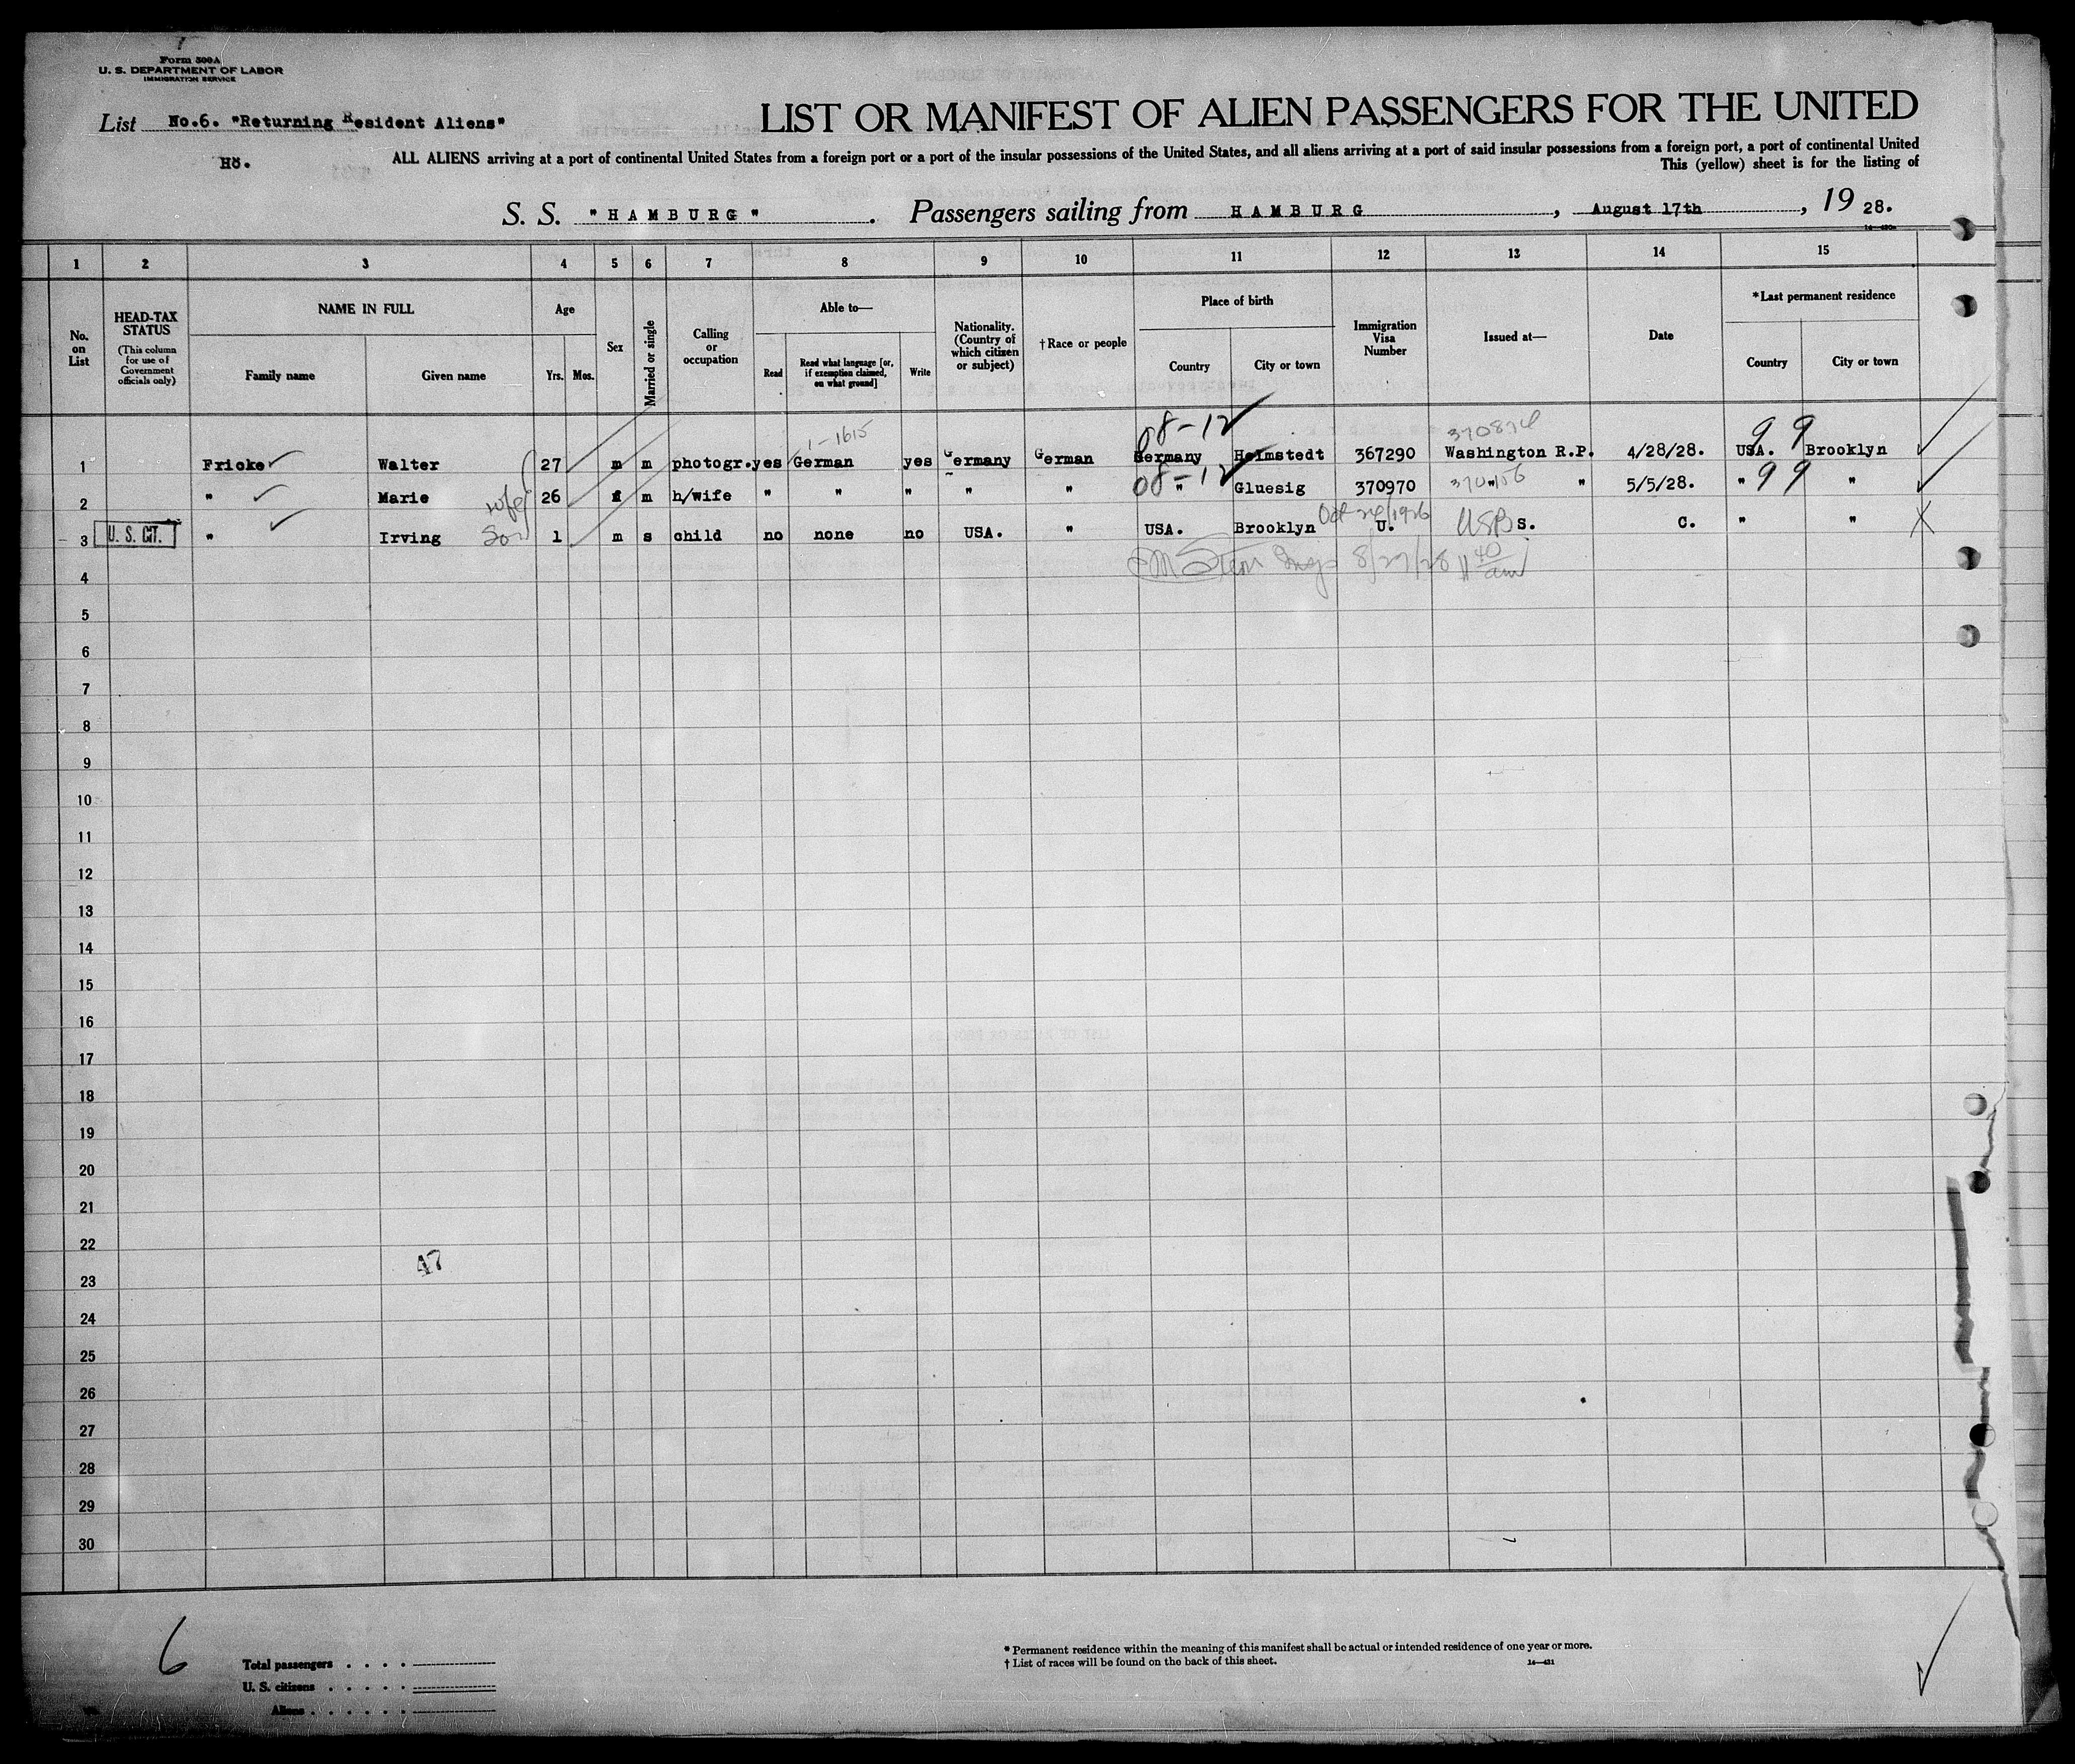 Form 500A
U. S. DEPARTMENT OF LABOR
IMMIGRATION SERVICE
List No.6. "Returning Resident Aliens"
LIST OR MANIFEST OF ALIEN PASSENGERS FOR THE UNITED
Hö.
ALL ALIENS arriving at a port of continental United States from a foreign port or a port of the insular possessions of the United States, and all aliens arriving at a port of said insular possessions from a foreign port, a port of continental United
This (yellow) sheet is for the listing of
S. S. "HAMBURG". Passengers sailing from HAMBURG, August 17th, 19 28.
1 2 3 4 5 6 7 8 9 10 11 12 13 14 15
No. on List
HEAD-TAX STATUS (This column for use of Government officials only)
NAME IN FULL
Family name Given name
Age
Yrs. Mos.
Sex
Married or single
Calling or occupation
Able to—
Read Read what language [or, if exemption claimed, on what ground] Write
Nationality. (Country of which citizen or subject)
†Race or people
Place of birth
Country City or town
Immigration Visa Number
Issued at—
Date
*Last permanent residence
Country City or town
08-12
1-1615
1 Fricke Walter 27 m m photogr. yes German yes Germany German Germany Helmstedt 367290 Washington R.P. 4/28/28. USA. Brooklyn
99
08-12
2 " Marie wife 26 f m h/wife " " " " " " Gluesig 370970 " " 5/5/28. " "
99
Oct 24/1926
3 U. S. CIT. " Irving Son 1 m s child no none no USA. " USA. Brooklyn U. USB S. C. " "
8/27/28 11 40 am
4
5
6
7
8
9
10
11
12
13
14
15
16
17
18
19
20
21
22
47
23
24
25
26
27
28
29
30
6
Total passengers
U. S. citizens
Aliens
* Permanent residence within the meaning of this manifest shall be actual or intended residence of one year or more.
† List of races will be found on the back of this sheet.
14—431